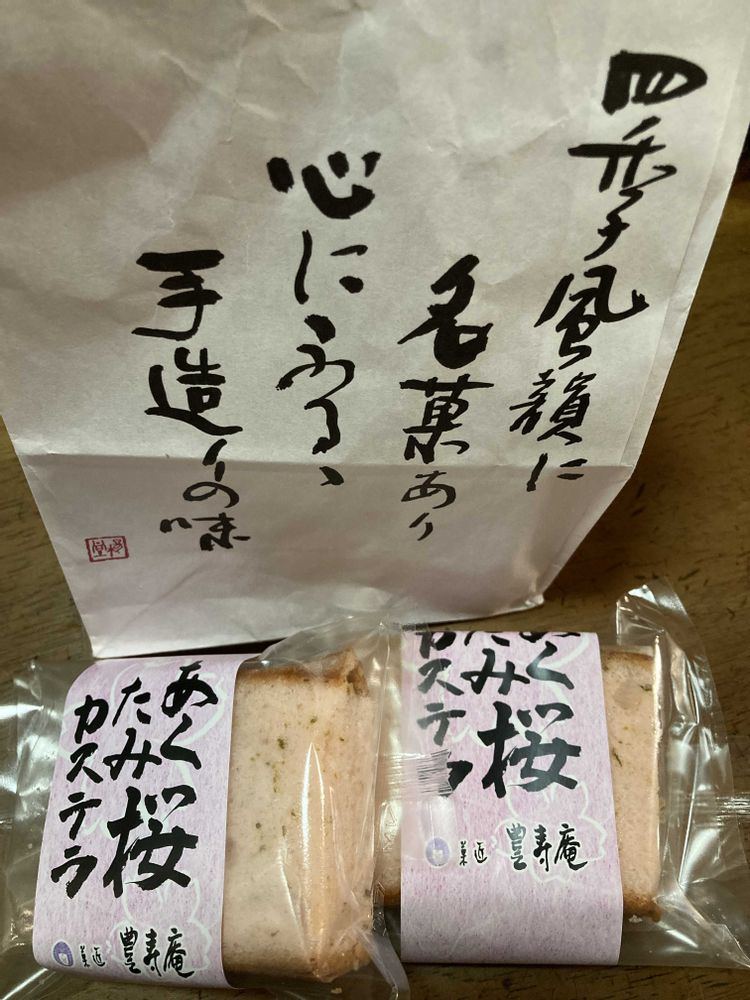 四季風韻に
名菓あり
心にふるゝ
手造りの味
あく
たみ桜
カステラ
菓匠 豊寿庵
あく
たみ桜
カステラ
菓匠 豊寿庵